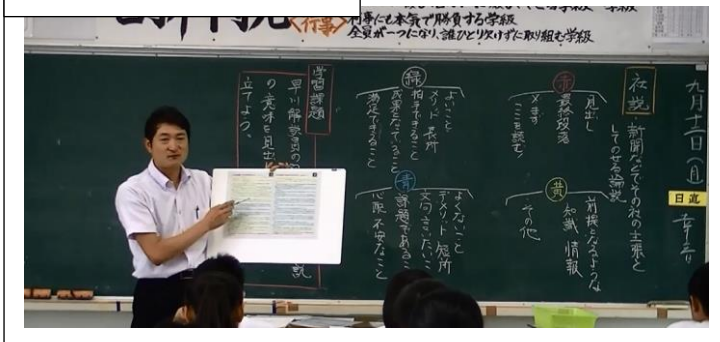 行事にも本気で勝負する学級
全員が一つになり、誰ひとり欠けずに取り組む学級
〈行事〉
九月十二日(月)
日直
社説
新聞などでその社の主張と
してのせる論説
赤
見出し
最終段落
×まず
ここを読む!
黄
前提となるような
知識 情報
その他
緑
よいこと
メリット 長所
拍手できること
成果となっていること
満足できること
青
よくないこと
デメリット 短所
文句言いたいこと
課題であること
心配 不安なこと
学習課題
早川解説員の
の意味を見出
立てよう。
説